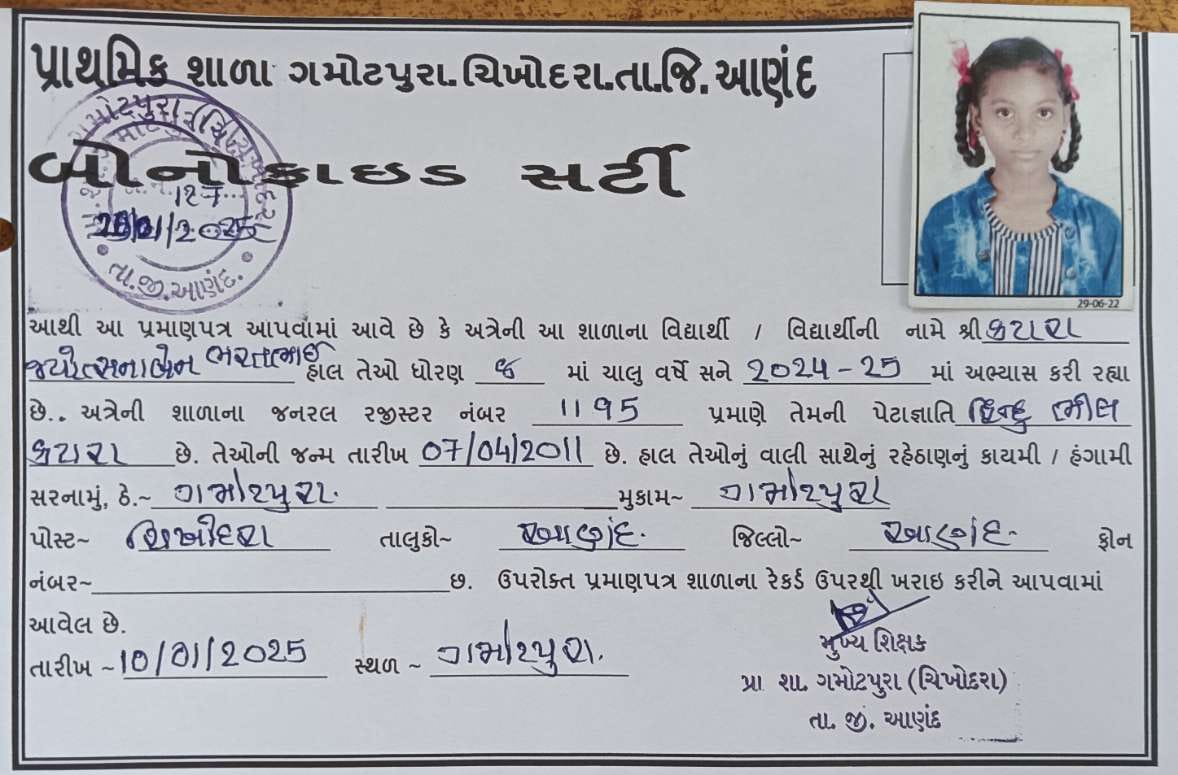 પ્રાથમિક શાળા ગમોટપુરા.ચિખોદરા.તા.જિ.આણંદ
બોનોફાઇડ સર્ટી
127
2025
તા.જી.આણંદ.
29-06-22
આથી આ પ્રમાણપત્ર આપવામાં આવે છે કે અત્રેની આ શાળાના વિદ્યાર્થી / વિદ્યાર્થીની નામે શ્રી કટારા
જ્યોત્સનાબેન ભરતભાઈ હાલ તેઓ ધોરણ ૭ માં ચાલુ વર્ષે સને 2024-25 માં અભ્યાસ કરી રહ્યા
છે.. અત્રેની શાળાના જનરલ રજીસ્ટર નંબર 1195 પ્રમાણે તેમની પેટાજ્ઞાતિ હિન્દુ ભીલ
કટારા છે. તેઓની જન્મ તારીખ 07/04/2011 છે. હાલ તેઓનું વાલી સાથેનું રહેઠાણનું કાયમી / હંગામી
સરનામું, ઠે.~ ગામોટપુરા. મુકામ~ ગામોટપુરા
પોસ્ટ~ ચિખોદરા તાલુકો~ આણંદ. જિલ્લો~ આણંદ. ફોન
નંબર~ છ. ઉપરોક્ત પ્રમાણપત્ર શાળાના રેકર્ડ ઉપરથી ખરાઇ કરીને આપવામાં
આવેલ છે.
તારીખ ~ 10/01/2025 સ્થળ ~ ગામોટપુરા.
મુખ્ય શિક્ષક
પ્રા શા. ગમોટપુરા (ચિખોદરા)
તા. જી. આણંદ